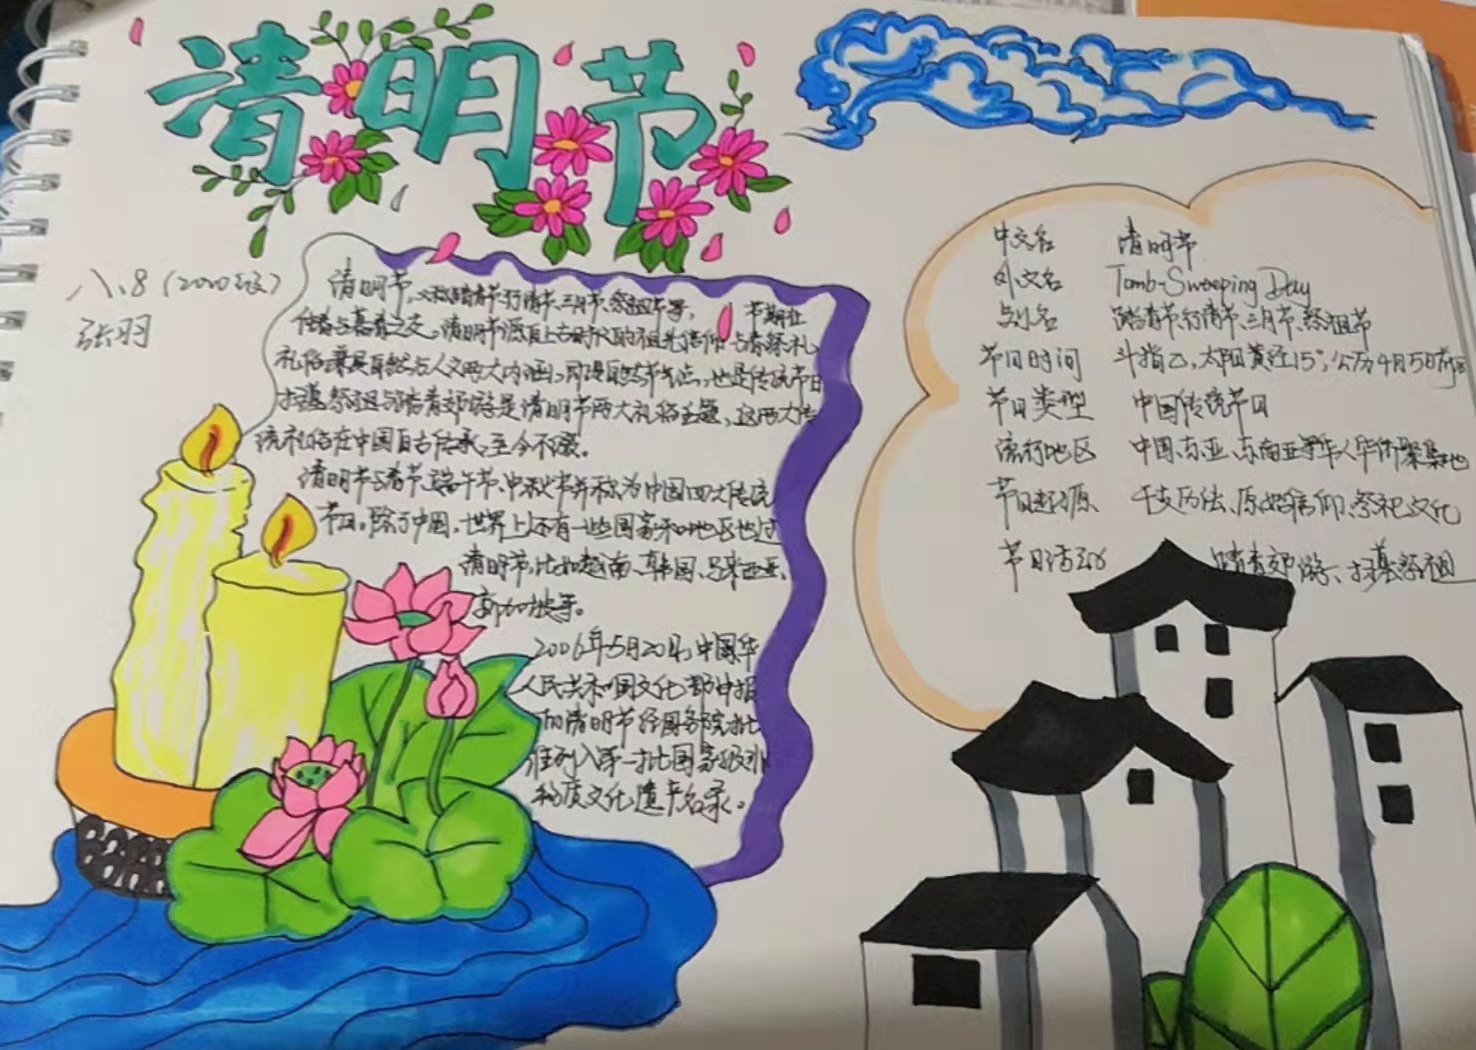 清明节
八.8(2020级)
张羽
清明节,又称踏青节、行清节、三月节、祭祖节等,节期在
仲春与暮春之交。清明节源自上古时代的祖先信仰与春祭礼
礼俗兼具自然与人文两大内涵,即是自然节气点,也是传统节日
扫墓祭祖与踏青郊游是清明节两大礼俗主题,这两大传
统礼俗在中国自古传承,至今不辍。
清明节与春节、端午节、中秋节并称为中国四大传统
节日。除了中国,世界上还有一些国家和地区也过
清明节,比如越南、韩国、马来西亚、
新加坡等。
2006年5月20日,中国华
人民共和国文化部申报
的清明节经国务院批
准列入第一批国家级非
物质文化遗产名录。
中文名 清明节
外文名 Tomb-Sweeping Day
别名 踏青节、行清节、三月节、祭祖节
节日时间 斗指乙,太阳黄经15°,公历4月5日前后
节日类型 中国传统节日
流行地区 中国、东亚、东南亚等华人华侨聚集地
节日起源 干支历法、原始信仰、祭祀文化
节日活动 踏青郊游、扫墓祭祖